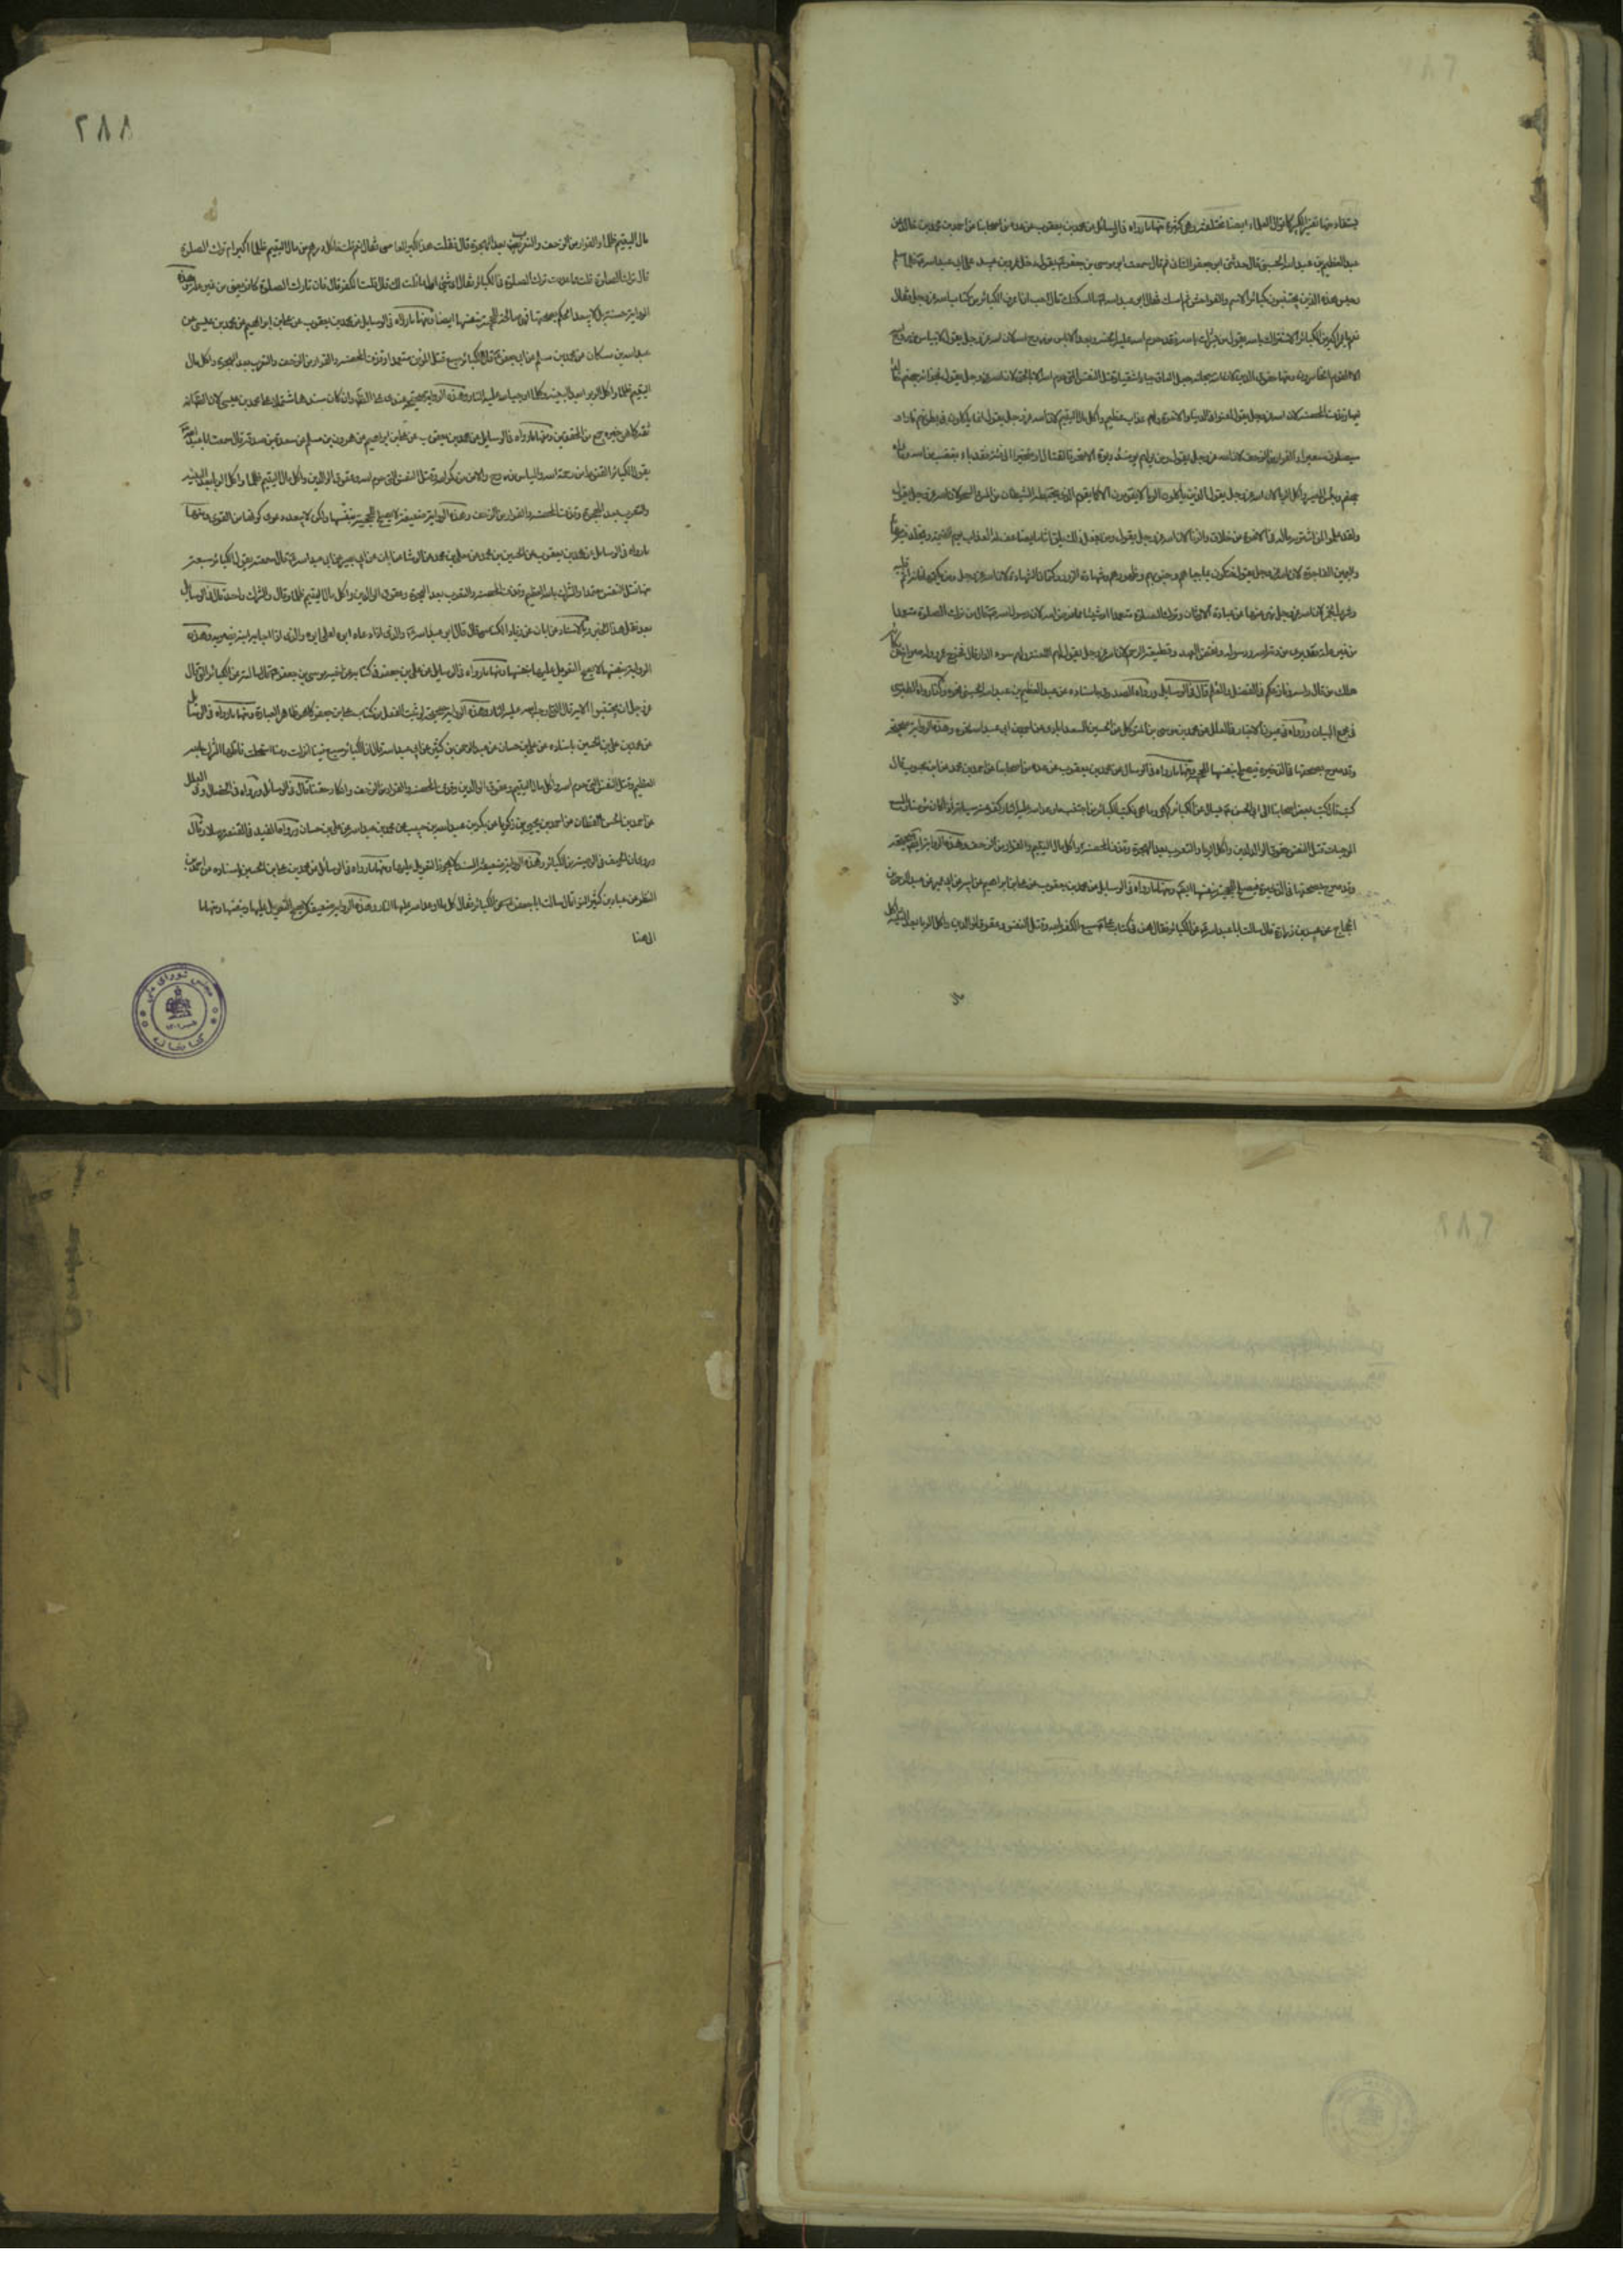 يستفاد منها تفسير الكبيرة اقوال العلماء ايضا مختلفة وهى كثيرة منها ما رواه فى الوسائل عن محمد بن يعقوب عن عدة من اصحابنا عن احمد بن محمد بن خالد عن
عبد العظيم بن عبد الله الحسنى قال حدثنى ابو جعفر الثانى ع قال سمعت ابى موسى بن جعفر ع يقول دخل عمرو بن عبيد على ابى عبد الله ع فلما سلم
وجلس هذه الذين يجتنبون كبائر الاثم والفواحش ثم امسك فقال ابو عبد الله ع ما اسكتك قال احب ان اعرف الكبائر من كتاب الله عز وجل فقال
نعم يا عمرو اكبر الكبائر الاشراك بالله يقول من يشرك بالله فقد حرم الله عليه الجنة وبعده الاياس من روح الله لان الله عز وجل يقول لا ييأس من روح
عقوق الوالدين لان الله جعل العاق جبارا شقيا وقتل النفس التى حرم الله الا بالحق لان الله عز وجل يقول فجزاؤه جهنم خالدا
فيها وقذف المحصنة لان الله عز وجل يقول لعنوا فى الدنيا والاخرة ولهم عذاب عظيم واكل مال اليتيم لان الله عز وجل يقول انما يأكلون فى بطونهم نارا و
سيصلون سعيرا والفرار من الزحف لان الله عز وجل يقول ومن يولهم يومئذ دبره الا متحرفا لقتال او متحيزا الى فئة فقد باء بغضب من الله ومأواه
جهنم وبئس المصير واكل الربا لان الله عز وجل يقول الذين يأكلون الربا لا يقومون الا كما يقوم الذى يتخبطه الشيطان من المس والسحر لان الله عز وجل يقول
ولقد علموا لمن اشتراه ما له فى الاخرة من خلاق والزنا لان الله عز وجل يقول ومن يفعل ذلك يلق اثاما يضاعف له العذاب يوم القيمة ويخلد فيه مهانا
فتكوى بها جباههم وجنوبهم وظهورهم وشهادة الزور وكتمان الشهادة لان الله عز وجل
وشرب الخمر لان الله عز وجل نهى عنها كما نهى عن عبادة الاوثان وترك الصلوة متعمدا او شيئا مما فرض الله لان رسول الله ص قال من ترك الصلوة متعمدا
من غير علة فقد برئ من ذمة الله ورسوله ونقض العهد وقطيعة الرحم لان الله عز وجل يقول لهم اللعنة ولهم سوء الدار قال فخرج عمرو وله صراخ من بكائه
هلك من قال برأيه ونازعكم فى الفضل والعلم قال فى الوسائل ورواه الصدوق باسناده عن عبد العظيم بن عبد الله الحسنى نحوه وكذا رواه الطبرسى
فى مجمع البيان ورواه فى عيون الاخبار وفى العلل عن محمد بن موسى بن المتوكل عن على بن الحسين السعدابادى عن احمد بن ابى عبد الله نحوه وهذه الرواية صحيحة
وقد صرح بصحتها فى الذخيرة فيصلح بنفسها للحجية ومنها ما رواه فى الوسائل عن محمد بن يعقوب عن عدة من اصحابنا عن احمد بن محمد عن ابن محبوب قال
كتب معى بعض اصحابنا الى ابى الحسن ع يسأل عن الكبائر كم هى وما هى فكتب الكبائر من اجتنب ما وعد الله عليه النار كفر عنه سيئاته اذا كان مؤمنا والسبع
الموجبات قتل النفس وعقوق الوالدين واكل الربا والتعرب بعد الهجرة وقذف المحصنة واكل مال اليتيم والفرار من الزحف وهذه الرواية ايضا صحيحة
وقد صرح بصحتها فى الذخيرة فيصلح للحجية بنفسها ايضا ومنها ما رواه فى الوسائل عن محمد بن يعقوب عن على بن ابراهيم عن ابيه عن ابن ابى عمير عن عبد الرحمن بن
الحجاج عن عبيد بن زرارة قال سالت ابا عبد الله ع عن الكبائر فقال هن فى كتاب على ع سبع الكفر بالله وقتل النفس وعقوق الوالدين واكل الربا بعد البينة واكل
مال
٢٨٨
مال اليتيم ظلما والفرار من الزحف والتعرب بعد الهجرة قال فقلت هذا اكبر المعاصى فقال نعم قلت فاكل درهم من مال اليتيم ظلما اكبر ام ترك الصلوة
قال ترك الصلوة قلت فما عددت ترك الصلوة فى الكبائر فقال اى شئ اول ما قلت لك قال قلت الكفر قال فان تارك الصلوة كافر يعنى من غير علة وهذه
الرواية حسنة بل لا يبعد الحكم بصحتها فهى صالحة للحجية بنفسها ايضا ومنها ما رواه فى الوسائل عن محمد بن يعقوب عن على بن ابراهيم عن محمد بن عيسى عن
عبد الله بن مسكان عن محمد بن مسلم عن ابى عبد الله ع قال الكبائر سبع قتل المؤمن متعمدا وقذف المحصنة والفرار من الزحف والتعرب بعد الهجرة واكل مال
اليتيم ظلما واكل الربا بعد البينة وكلما اوجب الله عليه النار وهذه الرواية صحيحة عندى
ثقة ومنها ما رواه فى الوسائل عن محمد بن يعقوب عن على بن ابراهيم عن هرون بن مسلم عن مسعدة بن صدقة قال سمعت ابا عبد الله ع
يقول الكبائر القنوط من رحمة الله والياس من روح الله والامن من مكر الله وقتل النفس التى حرم الله وعقوق الوالدين واكل مال اليتيم ظلما واكل الربا بعد البينة
والتعرب بعد الهجرة وقذف المحصنة والفرار من الزحف وهذه الرواية ضعيفة لا يصلح للحجية بنفسها ولكن لا يبعد دعوى كونها من القوى ومنها
ما رواه فى الوسائل عن محمد بن يعقوب عن الحسين بن محمد عن معلى بن محمد عن الوشا عن ابان عن ابى بصير عن ابى عبد الله ع قال سمعته يقول الكبائر سبعة
منها قتل النفس متعمدا والشرك بالله العظيم وقذف المحصنة والتعرب بعد الهجرة وعقوق الوالدين واكل مال اليتيم ظلما قال والشرك واحد قال فى الوسائل
بعد نقل هذا الخبر وبالاسناد عن ابان عن زياد الكناسى قال قال ابو عبد الله ع والذى اذا دعاه ابوه لعن اباه والذى اذا اجابه ابنه يضربه وهذه
الرواية بنفسها لا يصح التعويل عليها بنفسها ومنها ما رواه فى الوسائل عن على بن جعفر فى كتابه عن اخيه موسى بن جعفر ع قال سالته عن الكبائر التى قال
عز وجل ان تجتنبوا الاية قال التى اوجب الله عليها النار وهذه الرواية صحيحة ومنها ما رواه فى الوسائل
عن محمد بن على بن الحسين باسناده عن على بن حسان عن عبد الرحمن بن كثير عن ابى عبد الله ع قال ان الكبائر سبع فينا انزلت ومنا استحلت فاولها الشرك بالله
العظيم وقتل النفس التى حرم الله واكل مال اليتيم وعقوق الوالدين وقذف المحصنة والفرار من الزحف وانكار حقنا قال فى الوسائل ورواه فى الخصال وفى العلل
عن احمد بن الحسن القطان عن احمد بن يحيى بن زكريا عن بكر بن عبد الله بن حبيب عن محمد بن عبد الله عن على بن حسان ورواه المفيد فى المقنعة مرسلا وقال
وروى ان الحيف فى الوصية من الكبائر وهذه الرواية ضعيفة السند لا يجوز التعويل عليها ومنها ما رواه فى الوسائل عن محمد بن على بن الحسين باسناده عن احمد بن
النضر عن عباد بن كثير النوا قال سالت ابا جعفر ع عن الكبائر فقال كل ما اوعد الله عليها النار وهذه الرواية ضعيفة لا يصح التعويل عليها بنفسها ومنها ما
الى هنا
مجلس شورای ملی
کتابخانه